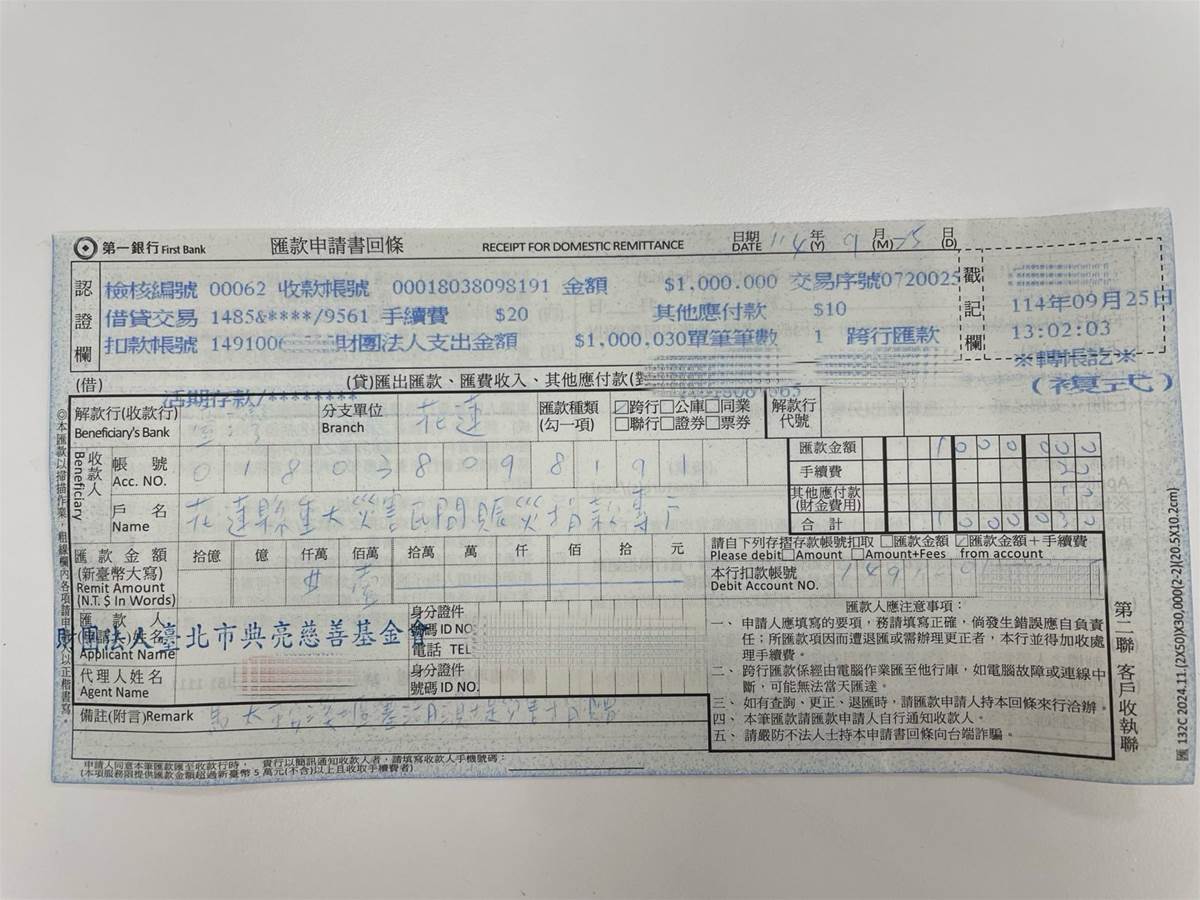 第一銀行 First Bank 匯款申請書回條 RECEIPT FOR DOMESTIC REMITTANCE 日期 DATE 114 年(Y) 9 月(M) 25 日(D)
認證欄
檢核編號 00062 收款帳號 00018038098191 金額 $1.000.000 交易序號0720025
借貸交易 1485&****/9561 手續費 $20 其他應付款 $10
扣款帳號 149100 財團法人支出金額 $1,000.030單筆筆數 1 跨行匯款
戳記欄
114年09月25日
13:02:03
※轉帳訖※
(複式)
(借) (貸)匯出匯款、匯費收入、其他應付款(
活期存款/********
解款行(收款行) Beneficiary's Bank 臺灣 分支單位 Branch 花蓮 匯款種類 (勾一項) ☑跨行□公庫□同業 □聯行□證券□票券 解款行代號
收款人 Beneficiary
帳號 Acc. NO. 018038098191
戶名 Name 花蓮縣重大災害民間賑災捐款專戶
匯款金額 1000000
手續費 20
其他應付款 (財金費用) 10
合計 1000030
匯款金額 (新臺幣大寫) Remit Amount (N.T. $ In Words) 拾億 億 仟萬 佰萬 拾萬 萬 仟 佰 拾 元
壹
請自下列存摺存款帳號扣取 □匯款金額 ☑匯款金額+手續費
Please debit □Amount □Amount+Fees from account
本行扣款帳號 Debit Account NO. 149
匯款人 (申請人)姓名 Applicant Name
財團法人臺北市典亮慈善基金會
身分證件號碼 ID NO.
電話 TEL
代理人姓名 Agent Name
身分證件號碼 ID NO.
備註(附言)Remark
匯款人應注意事項:
一、申請人應填寫的要項,務請填寫正確,倘發生錯誤應自負責
任;所匯款項因而遭退匯或需辦理更正者,本行並得加收處
理手續費。
二、跨行匯款係經由電腦作業匯至他行庫,如電腦故障或連線中
斷,可能無法當天匯達。
三、如有查詢、更正、退匯時,請匯款申請人持本回條來行洽辦。
四、本筆匯款請匯款申請人自行通知收款人。
五、請嚴防不法人士持本申請書回條向台端詐騙。
申請人同意本筆匯款匯至收款行時, 貴行以簡訊通知收款人者,請填寫收款人手機號碼:
(本項服務限提供匯款金額超過新臺幣5萬元(不含)以上且收取手續費者)
◎本匯款以掃描作業,粗線欄內各項請申請人以正楷書寫。
第二聯 客戶收執聯
匯 132C 2024.11.(2X50)X30,000(2-2)(20.5X10.2cm)